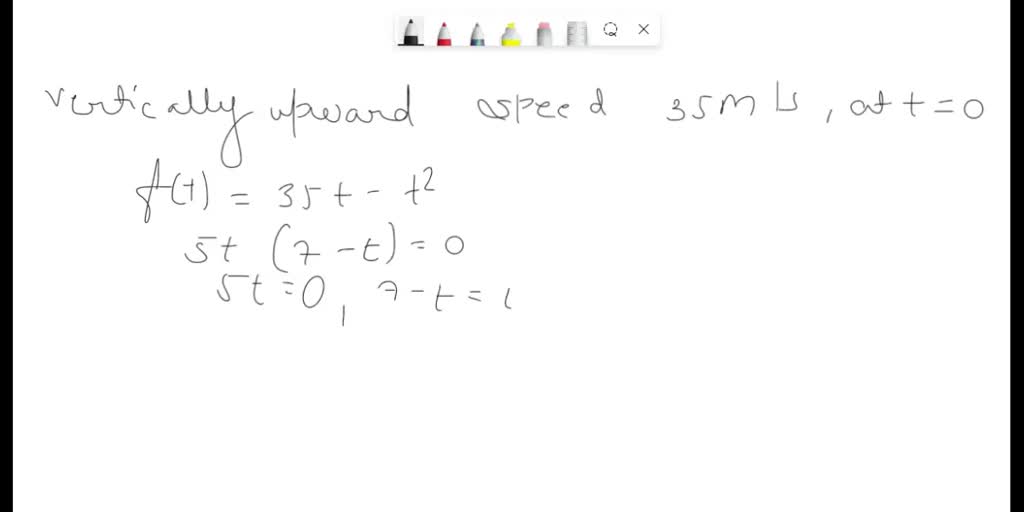 vertically upward speed 35m/s, at t=0
f(t) = 35t - t²
5t (7-t) = 0
5t=0, 7-t=